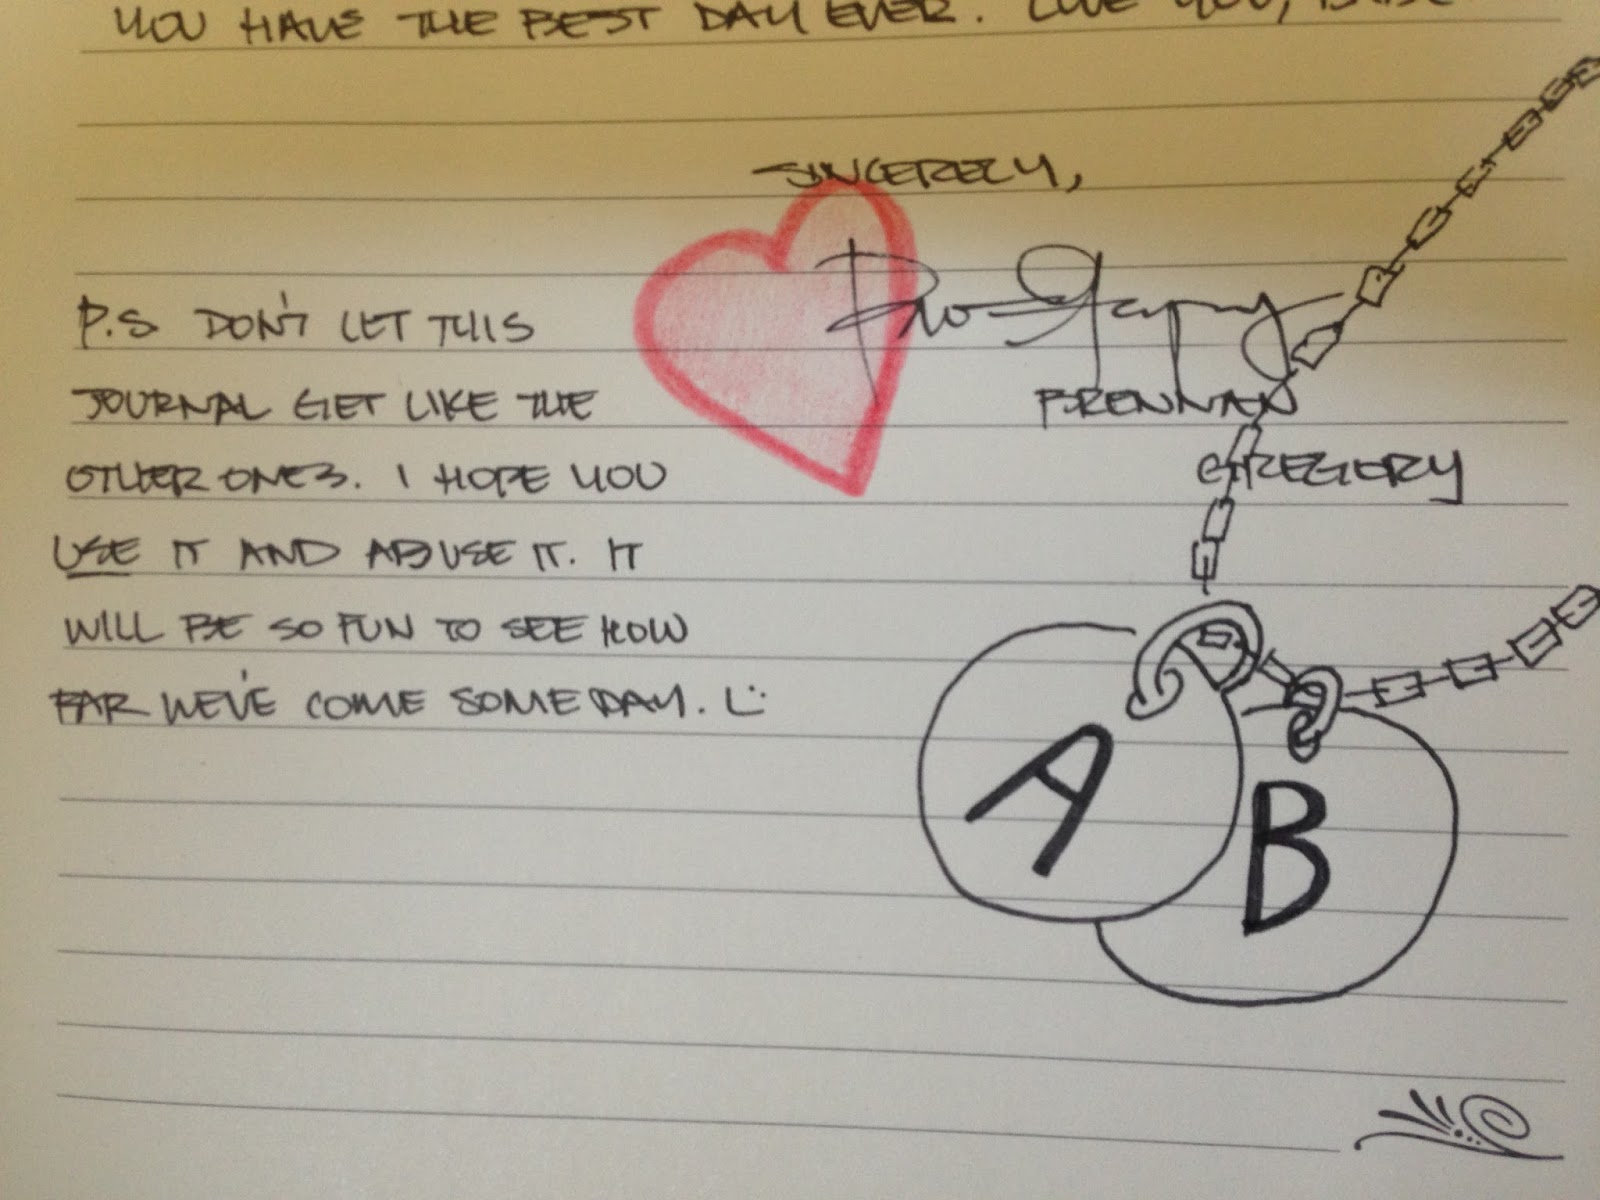 YOU HAVE THE BEST DAY EVER. LOVE YOU, BABE
SINCERELY,
BRENNAN
GREGERY
P.S DON'T LET THIS
JOURNAL GET LIKE THE
OTHER ONES. I HOPE YOU
USE IT AND ABUSE IT. IT
WILL BE SO FUN TO SEE HOW
FAR WE'VE COME SOMEDAY. (:
A
B